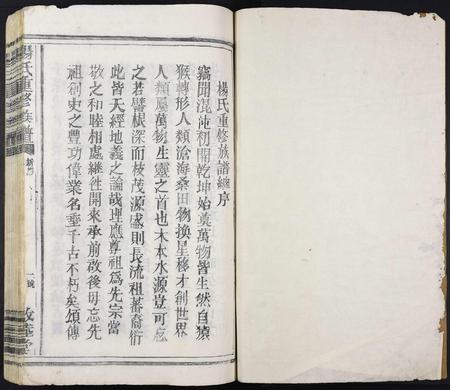 楊氏重修族譜繼序
竊聞混沌初開乾坤始奠萬物皆生然自猿
猴轉形人類滄海桑田物換星移才創世界
人類屬萬物生靈之首也木本水源豈可忘
之若譬根深而枝茂源盛則長流祖蕃裔衍
此皆天經地義之論哉理應尊祖為先宗當
敬之和睦相處繼往開來承前啟後毋忘先
祖創史之豐功偉業名垂千古不朽矣頌傳
楊氏重修族譜
一號